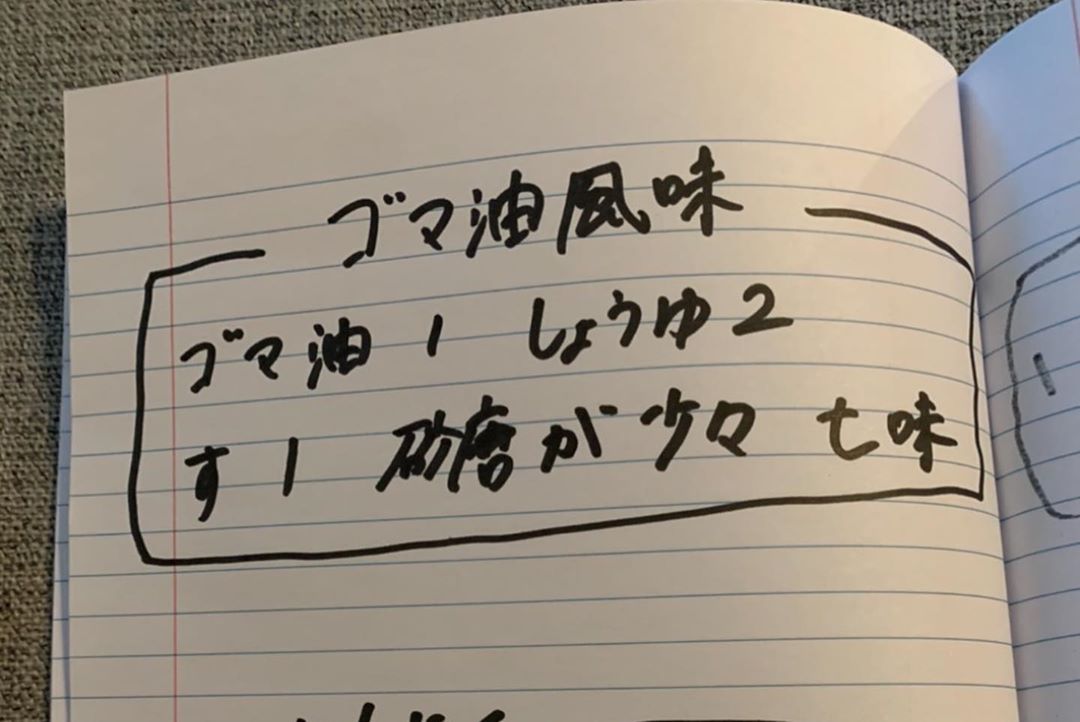 ゴマ油風味
ゴマ油 1 しょうゆ2
す 1 砂磨が少々 七味